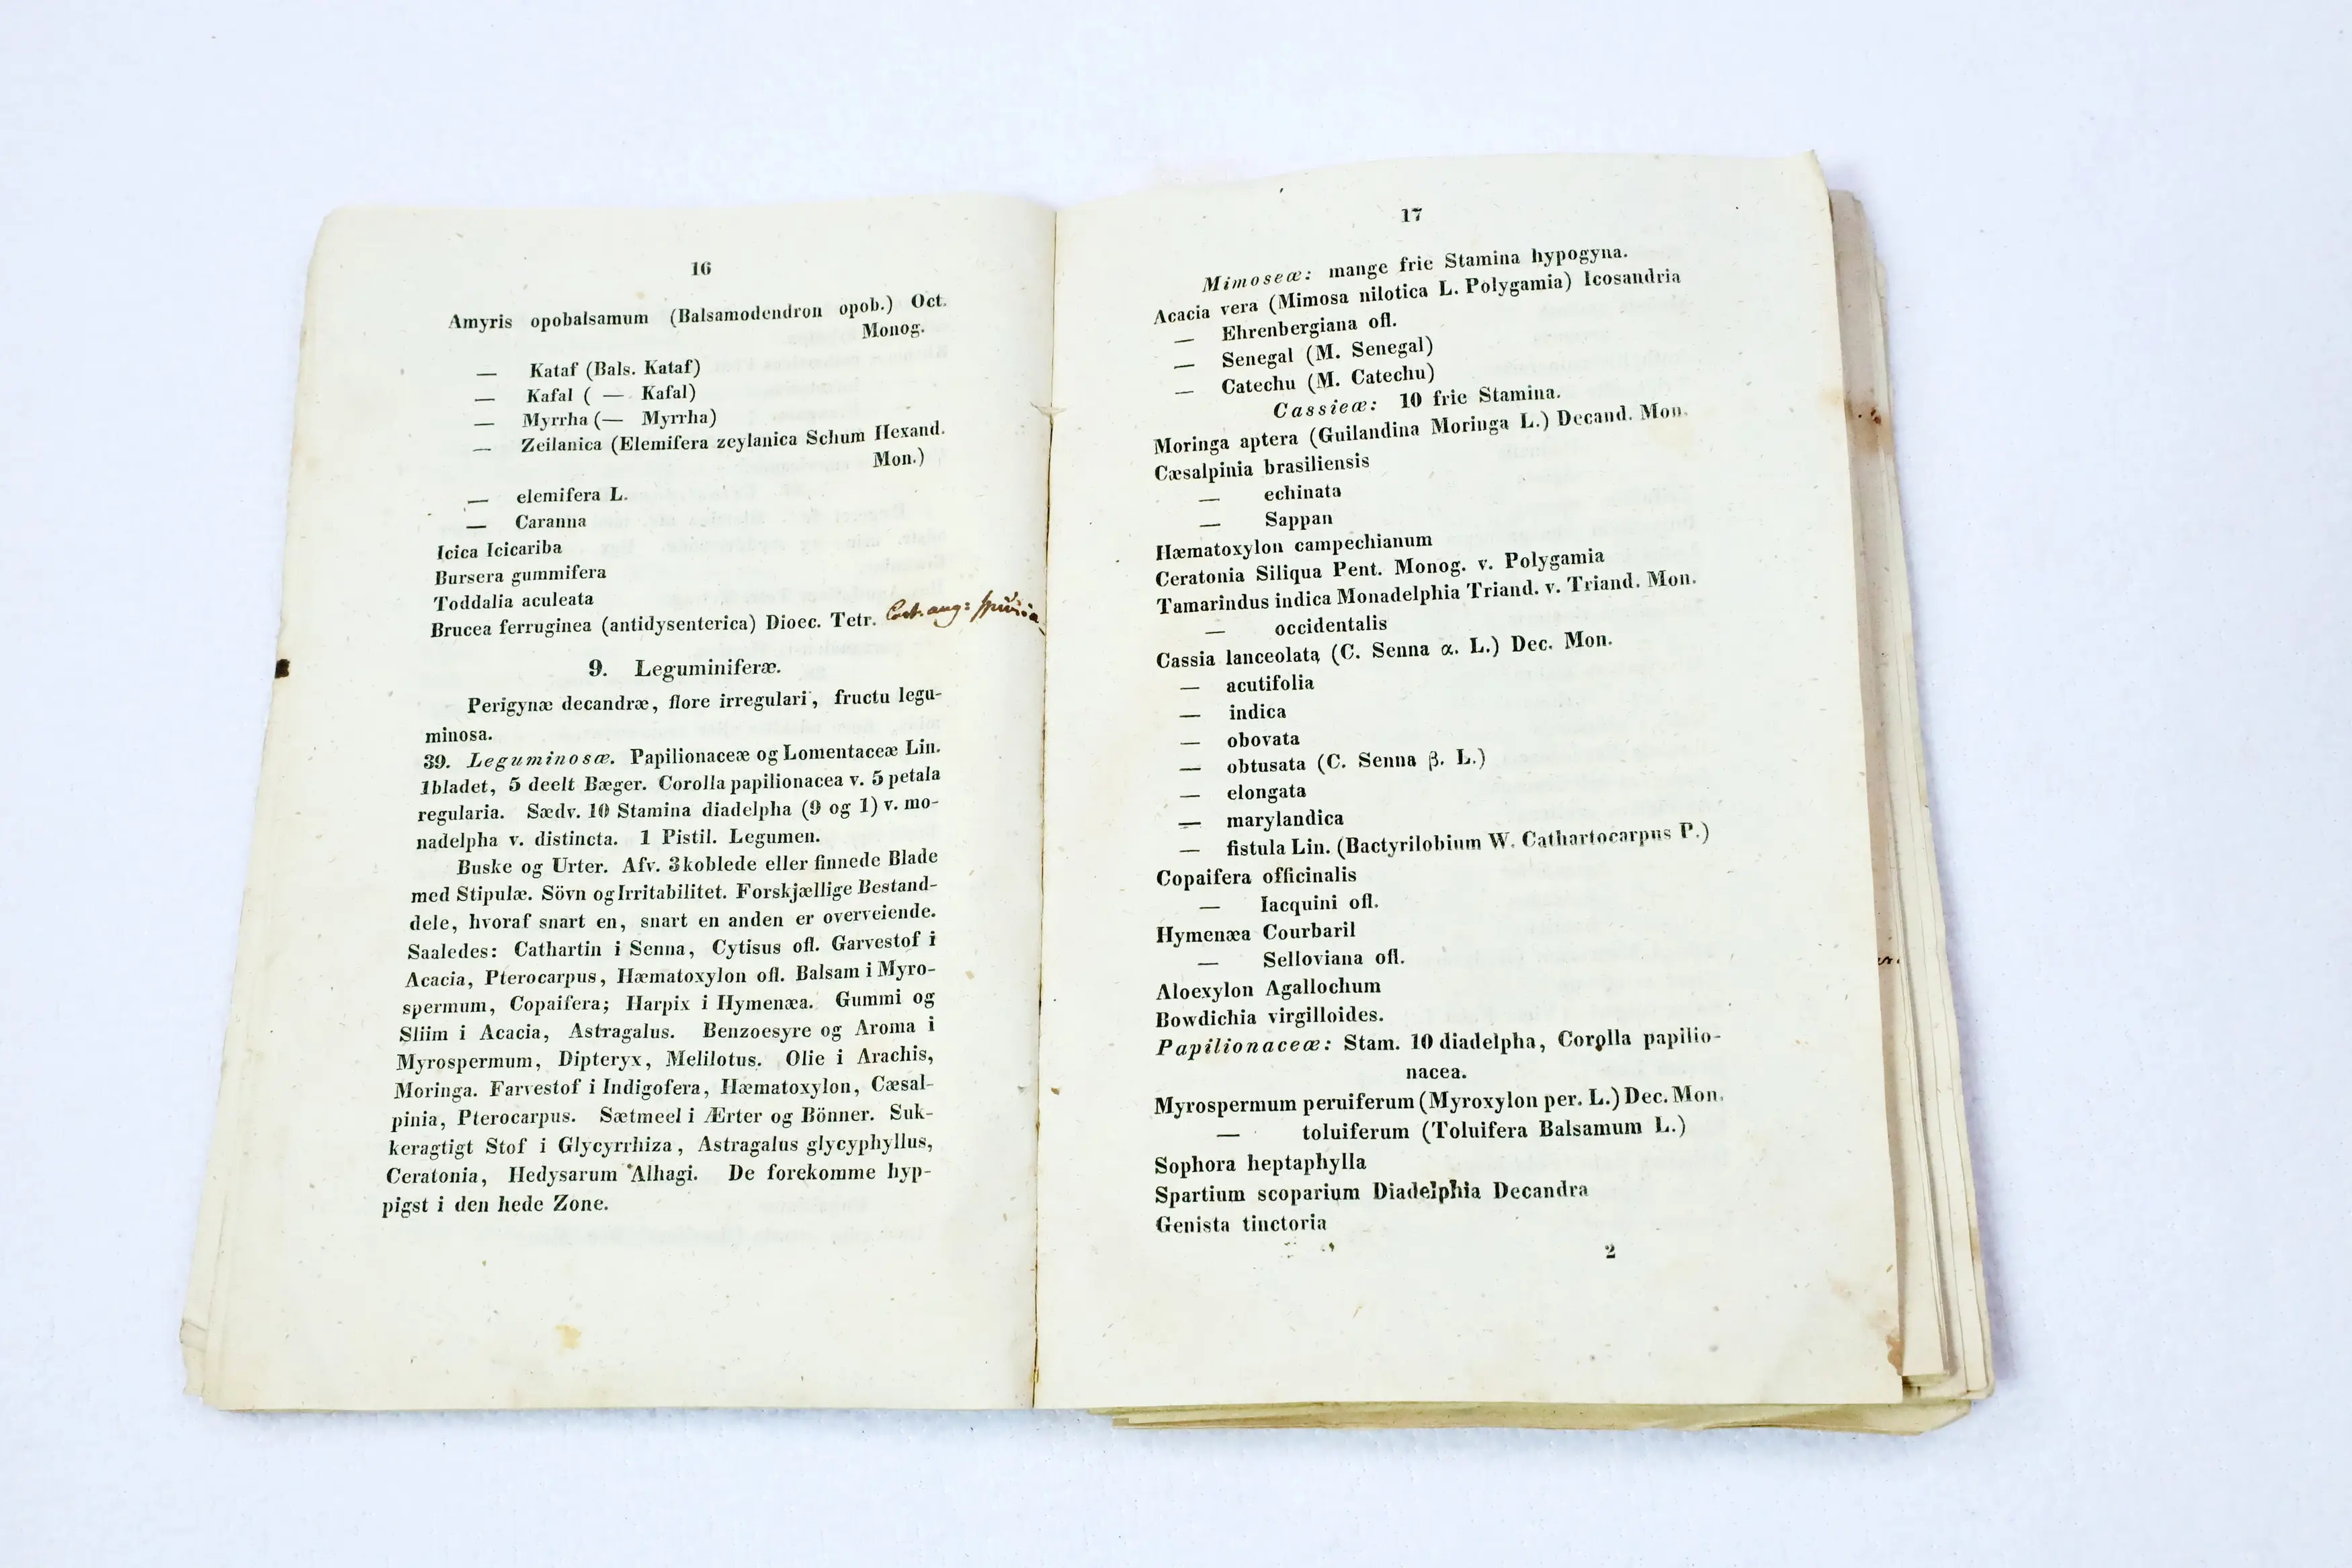 16
Amyris opobalsamum (Balsamodendron opob.) Oct.
Monog.
— Kataf (Bals. Kataf)
— Kafal ( — Kafal)
— Myrrha (— Myrrha)
— Zeilanica (Elemifera zeylanica Schum Hexand.
Mon.)
— elemifera L.
— Caranna
Icica Icicariba
Bursera gummifera
Toddalia aculeata
Brucea ferruginea (antidysenterica) Dioec. Tetr. Cort. ang: spuria
9. Leguminiferæ.
Perigynæ decandræ, flore irregulari, fructu legu-
minosa.
39. Leguminosæ. Papilionaceæ og Lomentaceæ Lin.
1bladet, 5 deelt Bæger. Corolla papilionacea v. 5 petala
regularia. Sædv. 10 Stamina diadelpha (9 og 1) v. mo-
nadelpha v. distincta. 1 Pistil. Legumen.
Buske og Urter. Afv. 3koblede eller finnede Blade
med Stipulæ. Sövn og Irritabilitet. Forskjællige Bestand-
dele, hvoraf snart en, snart en anden er overveiende.
Saaledes: Cathartin i Senna, Cytisus ofl. Garvestof i
Acacia, Pterocarpus, Hæmatoxylon ofl. Balsam i Myro-
spermum, Copaifera; Harpix i Hymenæa. Gummi og
Sliim i Acacia, Astragalus. Benzoesyre og Aroma i
Myrospermum, Dipteryx, Melilotus. Olie i Arachis,
Moringa. Farvestof i Indigofera, Hæmatoxylon, Cæsal-
pinia, Pterocarpus. Sætmeel i Ærter og Bönner. Suk-
keragtigt Stof i Glycyrrhiza, Astragalus glycyphyllus,
Ceratonia, Hedysarum Alhagi. De forekomme hyp-
pigst i den hede Zone.
17
Mimoseæ: mange frie Stamina hypogyna.
Acacia vera (Mimosa nilotica L. Polygamia) Icosandria
— Ehrenbergiana ofl.
— Senegal (M. Senegal)
— Catechu (M. Catechu)
Cassieæ: 10 frie Stamina.
Moringa aptera (Guilandina Moringa L.) Decand. Mon.
Cæsalpinia brasiliensis
— echinata
— Sappan
Hæmatoxylon campechianum
Ceratonia Siliqua Pent. Monog. v. Polygamia
Tamarindus indica Monadelphia Triand. v. Triand. Mon.
— occidentalis
Cassia lanceolata (C. Senna α. L.) Dec. Mon.
— acutifolia
— indica
— obovata
— obtusata (C. Senna β. L.)
— elongata
— marylandica
— fistula Lin. (Bactyrilobium W. Cathartocarpus P.)
Copaifera officinalis
— Iacquini ofl.
Hymenæa Courbaril
— Selloviana ofl.
Aloexylon Agallochum
Bowdichia virgilloides.
Papilionaceæ: Stam. 10 diadelpha, Corolla papilio-
nacea.
Myrospermum peruiferum (Myroxylon per. L.) Dec. Mon.
— toluiferum (Toluifera Balsamum L.)
Sophora heptaphylla
Spartium scoparium Diadelphia Decandra
Genista tinctoria
2